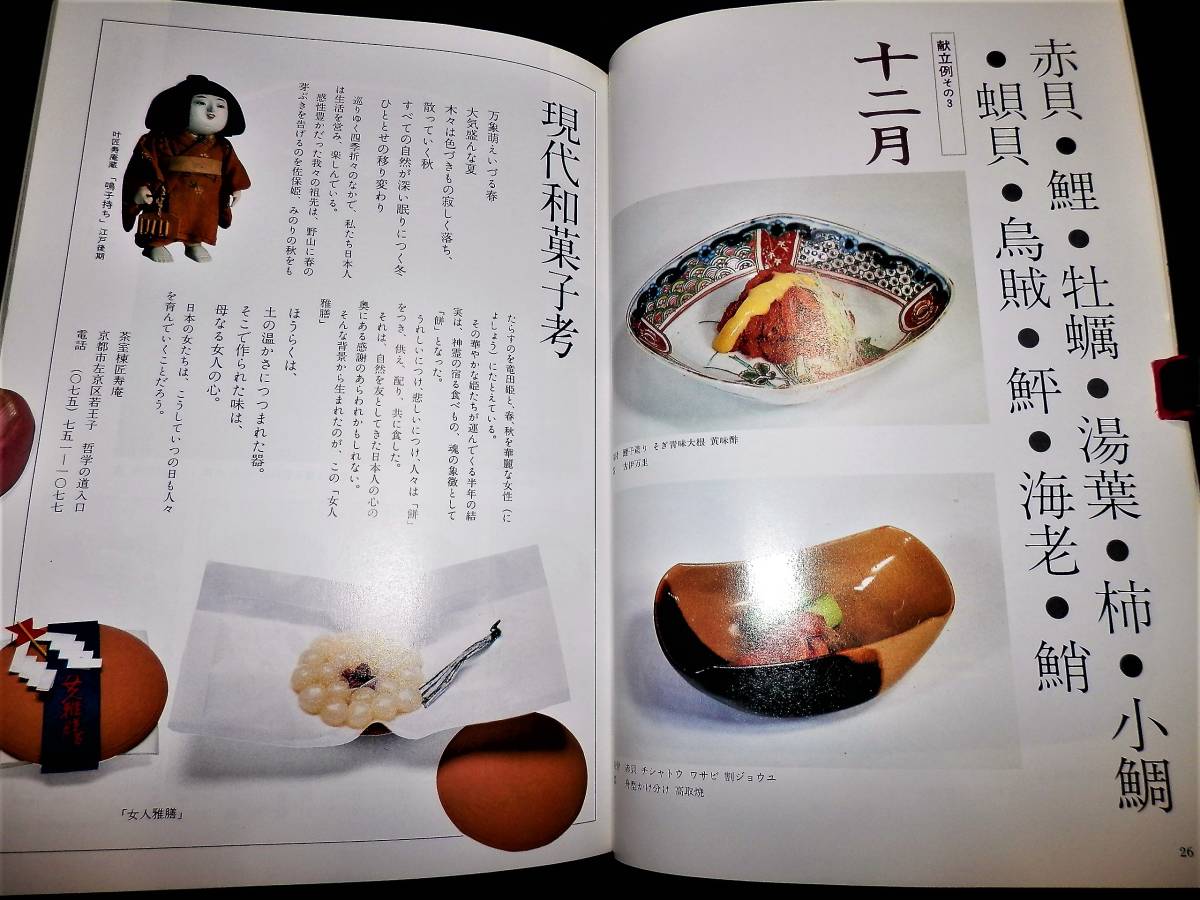 献立例その3
十二月
赤貝・鯉・牡蠣・湯葉・柿・小鯛
・蜆貝・烏賊・鮃・海老・鮹
鯉子造り そぎ青味大根 黄味酢
古伊万里
赤貝 チシャトウ ワサビ 割ジョウユ
舟型かけ分け 高取焼
26
現代和菓子考
万象萌えいづる春
大気盛んな夏
木々は色づきもの寂しく落ち、
散っていく秋
すべての自然が深い眠りにつく冬
ひととせの移り変わり
巡りゆく四季折々のなかで、私たち日本人
は生活を営み、楽しんでいる。
感性豊かだった我々の祖先は、野山に春の
芽ぶきを告げるのを佐保姫、みのりの秋をも
たらすのを竜田姫と、春、秋を華麗な女性（に
ょしょう）にたとえている。
その華やかな姫たちが運んでくる半年の結
実は、神霊の宿る食べもの、魂の象徴として
「餅」となった。
うれしいにつけ、悲しいにつけ、人々は「餅」
をつき、供え、配り、共に食した。
それは、自然を友としてきた日本人の心の
奥にある感謝のあらわれかもしれない。
そんな背景から生まれたのが、この「女人
雅膳」
ほうらくは、
土の温かさにつつまれた器。
そこで作られた味は、
母なる女人の心。
日本の女たちは、こうしていつの日も人々
を育んでいくことだろう。
茶室棟匠寿庵
京都市左京区若王子 哲学の道入口
電話 （〇七五）七五一－一〇七七
叶匠寿庵蔵 「鳴子持ち」 江戸後期
女人雅膳
「女人雅膳」